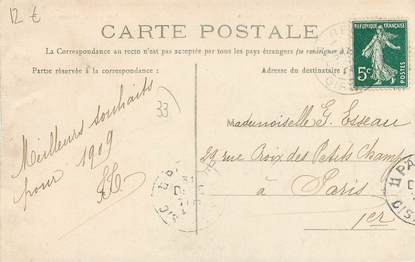 12 €
CARTE POSTALE
La Correspondance au recto n'est pas acceptée par tous les pays étrangers (se renseigner à la
Partie réservée à la correspondance:
Adresse du destinataire
REPUBLIQUE FRANÇAISE
5c
POSTES
33
Meilleurs souhaits
pour 1909
Mademoiselle G. Esseau
29 rue Croix des Petits Champs
à Paris
1er